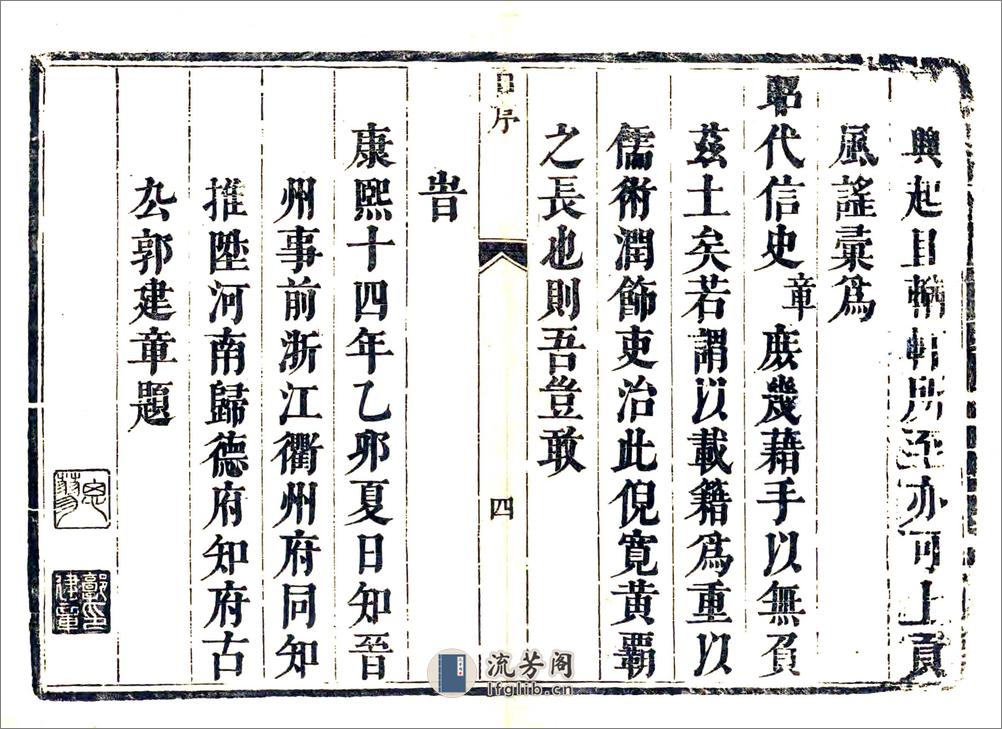 興起且輶軒所至亦可上貢
風謠彙爲
昭代信史章庶幾藉手以無負
茲土矣若謂以載籍爲重以
儒術潤飾吏治此倪寬黃霸
之長也則吾豈敢
序
四
旹
康熙十四年乙卯夏日知晉
州事前浙江衢州府同知
推陞河南歸德府知府古
厷郭建章題
郭建章印
流芳阁
lfglib.cn